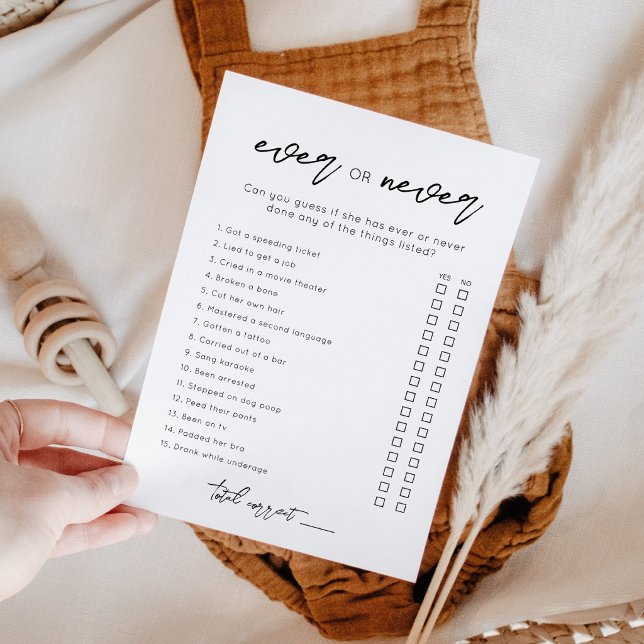 ever OR never
Can you guess if she has ever or never
done any of the things listed?
YES NO
1. Got a speeding ticket
2. Lied to get a job
3. Cried in a movie theater
4. Broken a bone
5. Cut her own hair
6. Mastered a second language
7. Gotten a tattoo
8. Carried out of a bar
9. Sang karaoke
10. Been arrested
11. Stepped on dog poop
12. Peed their pants
13. Been on tv
14. Padded her bra
15. Drank while underage
total correct ___